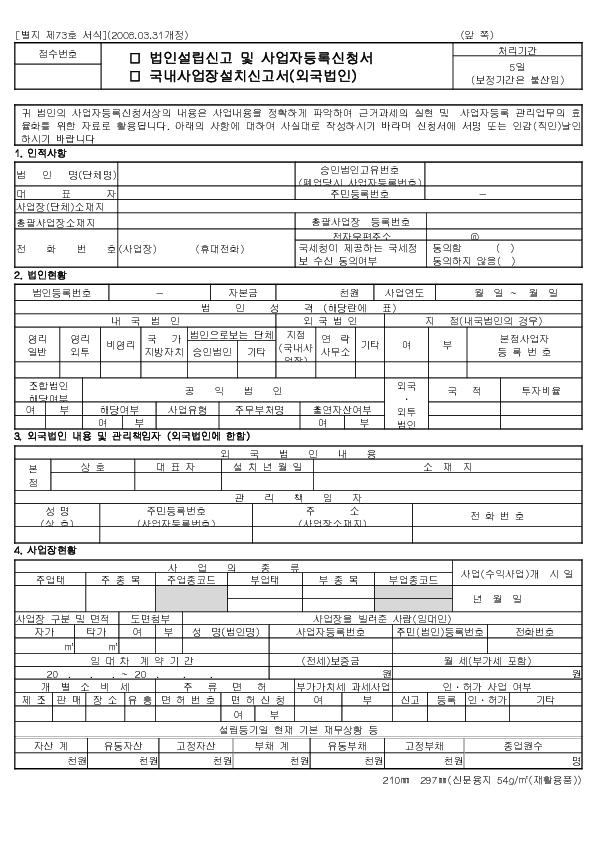 [별지 제73호 서식](2008.03.31개정) (앞 쪽)
접수번호
□ 법인설립신고 및 사업자등록신청서
□ 국내사업장설치신고서(외국법인)
처리기간
5일
(보정기간은 불산입)
귀 법인의 사업자등록신청서상의 내용은 사업내용을 정확하게 파악하여 근거과세의 실현 및 사업자등록 관리업무의 효
율화를 위한 자료로 활용됩니다. 아래의 사항에 대하여 사실대로 작성하시기 바라며 신청서에 서명 또는 인감(직인)날인
하시기 바랍니다
1. 인적사항
법 인 명(단체명) 승인법인고유번호
(폐업당시 사업자등록번호)
대 표 자 주민등록번호 -
사업장(단체)소재지
총괄사업장소재지 총괄사업장 등록번호
전자우편주소 @
전 화 번 호 (사업장) (휴대전화) 국세청이 제공하는 국세정 동의함 ( )
보 수신 동의여부 동의하지 않음( )
2. 법인현황
법인등록번호 - 자본금 천원 사업연도 월 일 ~ 월 일
법 인 성 격 (해당란에 표)
내 국 법 인 외 국 법 인 지 점(내국법인의 경우)
영리 영리 비영리 국 가 법인으로보는 단체 지점 연 락 기타 여 부 본점사업자
일반 외투 지방자치 승인법인 기타 (국내사 사무소 등 록 번 호
업장)
조합법인 공 익 법 인 외국 국 적 투자비율
해당여부 ·
여 부 해당여부 사업유형 주무부처명 출연자산여부 외투
여 부 여 부 법인
3. 외국법인 내용 및 관리책임자 (외국법인에 한함)
외 국 법 인 내 용
본 상 호 대 표 자 설 치 년 월 일 소 재 지
점
관 리 책 임 자
성 명 주민등록번호 주 소 전 화 번 호
(상 호) (사업자등록번호) (사업장소재지)
4. 사업장현황
사 업 의 종 류 사업(수익사업)개 시 일
주업태 주 종 목 주업종코드 부업태 부 종 목 부업종코드
년 월 일
사업장 구분 및 면적 도면첨부 사업장을 빌려준 사람(임대인)
자가 타가 여 부 성 명(법인명) 사업자등록번호 주민(법인)등록번호 전화번호
㎡ ㎡
임 대 차 계 약 기 간 (전세)보증금 월 세(부가세 포함)
20 . . . ~ 20 . . . 원 원
개 별 소 비 세 주 류 면 허 부가가치세 과세사업 인·허가 사업 여부
제 조 판 매 장 소 유 흥 면 허 번 호 면 허 신 청 여 부 신고 등록 인·허가 기타
여 부
설립등기일 현재 기본 재무상황 등
자산 계 유동자산 고정자산 부채 계 유동부채 고정부채 종업원수
천원 천원 천원 천원 천원 천원 명
210㎜ 297㎜(신문용지 54g/㎡(재활용품))